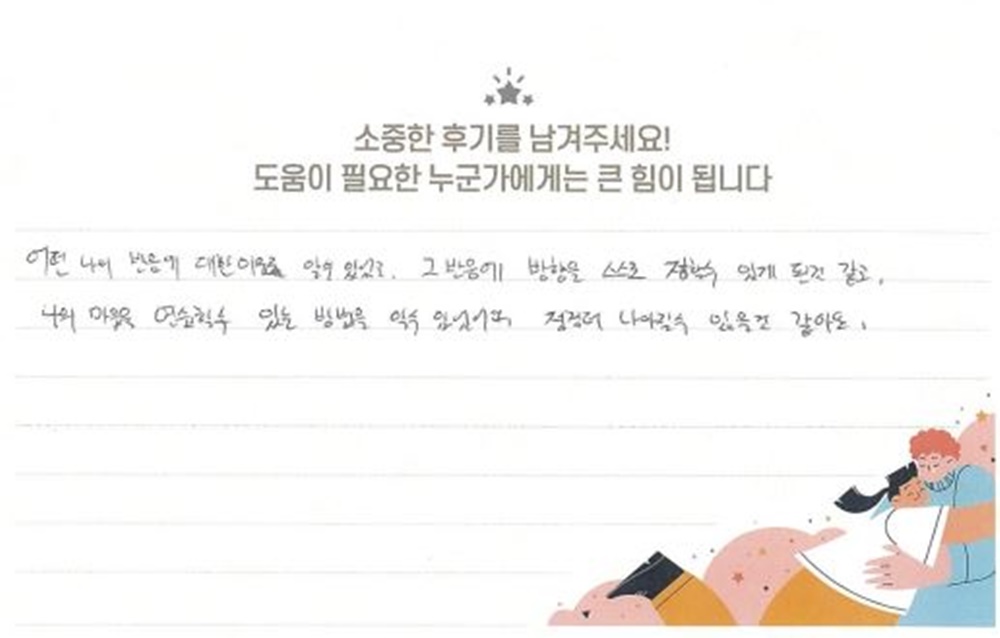 소중한 후기를 남겨주세요!
도움이 필요한 누군가에게는 큰 힘이 됩니다
어떤 나의 반응에 대한 이유를 알수 있었고, 그 반응에 방향을 스스로 정할수 있게 된건 같고,
나의 마음을 연습할수 있는 방법을 익수 있었어요 점점더 나아갈수 있을것 같아요.